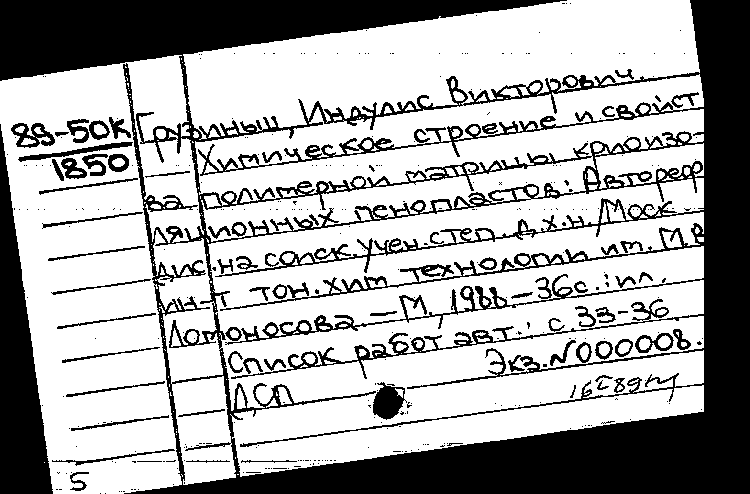 89-50К
1850
Грузиньш, Индулис Викторович.
Химическое строение и свойст
ва полимерной матрицы криоизо-
ляционных пенопластов: Автореф
дис. на соиск. учен. степ. д.х.н. /Моск.
ин-т тон. хим технологии им. М.В
Ломоносова. — М., 1988. — 36с. : ил.
Список работ авт.: с. 33-36.
Экз. N000008.
ДСП
5